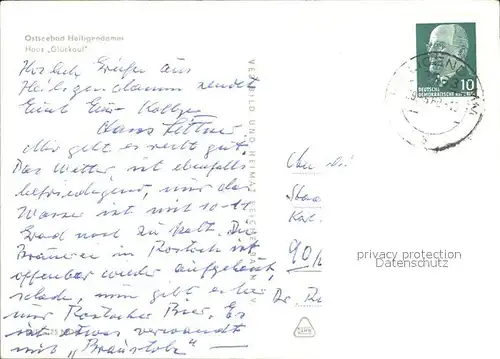 Ostseebad Heiligendamm
Haus „Glückauf"
Herzlich Grüßen aus
Heiligendamm sendet
Euch Euer Kollege
Hans
Mir geht es recht gut.
Das Wetter ist ebenfalls
befriedigend, nur das
Wasser ist mit 10-11
Grad noch zu kalt. Die
Brauerei in Rostock ist
offenbar wieder aufgebaut,
schade, nun gibt es hier
nur Rostocker Bier. Es
ist etwas verwandt
mit „Braustolz" —
VERLAG BILD UND HEIMAT REICHENBACH
10
DEUTSCHE
DEMOKRATISCHE REPUBLIK
An die
Kar
90
privacy protection
Datenschutz